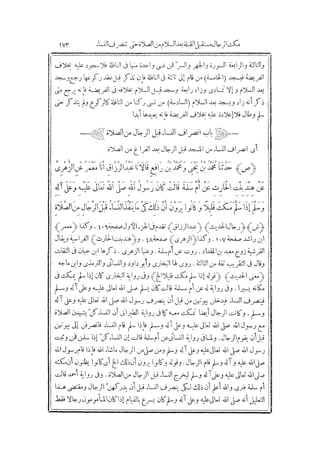 مكث الرجال مستقبلي القبلة بعد السلام من الصلاة حتى تنصرف النساء ١٧٣
والثالثة والرابعة السورة والجهر والسر فن نسى واحدة منها فى النافلة فلا سجود عليه بخلاف
الفريضة فيسجد (الخامسة) من قام إلى ثالثة فى النافلة فإن تذكر قبل عقد ركوعها رجع وسجد
بعد السلام وإلا تمادى وزاد رابعة وسجد قبل السلام بخلافه فى الفريضة فإنه يرجع متى
ذكر أنه زاد ويسجد بعد السلام (السادسة) من نسى ركنا من النافلة كالركوع ولم يتذكر حتى
سلم وطال فلا إعادة عليه بخلاف الفريضة فإنه يعيدها أبدا
باب انصراف النساء قبل الرجال من الصلاة
أى انصراف النساء من المسجد قبل الرجال بعد الفراغ من الصلاة
(ص) حدثنا محمد بن يحيى ومحمد بن رافع قالا نا عبد الرزاق أنا معمر عن الزهرى
عن هند بنت الحارث عن أم سلمة قالت كان رسول الله صلى الله تعالى عليه وعلى آله
وسلم إذا سلم مكث قليلا وكانوا يرون أن ذلك كيما ينفذ النساء قبل الرجال من الصلاة
(ش) (رجال الحديث) (عبد الرزاق) تقدم فى الجزء الأول صفحة ١٠٦. وكذا (معمر)
ابن راشد صفحة ١٠٧. وكذا (الزهرى) صفحة ٤٨. و (هند بنت الحارث) الفراسية ويقال
القرشية زوج معبد بن المقداد. روت عن أم سلمة. وعنها الزهرى. ذكرها ابن حبان فى الثقات
وقال فى التقريب ثقة من الثالثة. روى لها البخارى وأبو داود والنسائى والترمذى وابن ماجه
(معنى الحديث) (قوله إذا سلم مكث قليلا الخ) وفى رواية البخارى كان إذا سلم يمكث فى
مكانه يسيرا. وفى رواية له عن أم سلمة قالت كان يسلم صلى الله تعالى عليه وعلى آله وسلم
فينصرف النساء فيدخلن بيوتهن من قبل أن ينصرف رسول الله صلى الله تعالى عليه وعلى آله
وسلم. وكانت الرجال أيضا تمكث معه كما فى رواية الطبرانى أن النساء كن يشهدن الصلاة
مع رسول الله صلى الله تعالى عليه وعلى آله وسلم فإذا سلم قام النساء فانصرفن إلى بيوتهن
قبل أن يقوم الرجال. ولما فى رواية النسائى عن أم سلمة قالت إن النساء كن إذا سلمن قمن وثبت
رسول الله صلى الله تعالى عليه وعلى آله وسلم ومن صلى من الرجال ماشاء الله فإذا قام رسول الله
صلى الله عليه وآله وسلم قام الرجال. وقوله وكانوا يرون أن ذلك الخ أى كانوا يظنون أن مكثه
صلى الله تعالى عليه وعلى آله وسلم ليخرج النساء قبل الرجال من الصلاة. وفى رواية أحمد قالت
أم سلمة فنرى والله أعلم أن ذلك لكى ينصرف النساء قبل أن يدركهن الرجال ومقتضى هذا
التعليل أنه صلى الله تعالى عليه وعلى آله وسلم كان يسرع بالقيام إذا كان المأمومون رجالا فقط